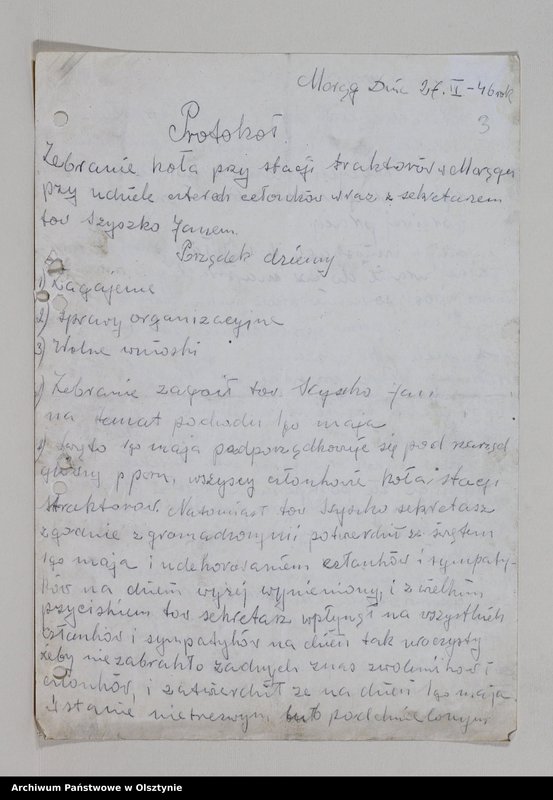 Morąg Dnia 27.II-46 rok
3
Protokoł.
Zebranie koła przy stacji traktorów w Morągu
przy udziele czterech członków wraz z sekretarzem
tow Szyszko Janem.
Porządek dzienny
1) Zagajenie
2) Sprawy organizacyjne
3) Wolne wnioski
1) Zebranie zagaił tow. Szyszko Jan
na temat pochodu 1go maja
Święto 1go maja podporządkowuje się pod zarząd
główny ppom, wszyscy członkowie koła stacji
traktorow. Natomiast tow Szyszko sekretasz
zgodnie z gromadzonymi potwierdził ze świętem
1go maja i udekorowaniem członków i sympaty-
ków na dzień wyżej wymieniony, i z wielkim
przyciskiem tow sekretasz wpłynął na wszystkich
członków i sympatyków na dzień tak uroczysty
żeby nie zabrakło żadnych z nas zwolenników i
członków, i zatwierdził ze na dzień 1go maja
w stanie nietrzezwym
Archiwum Państwowe w Olsztynie